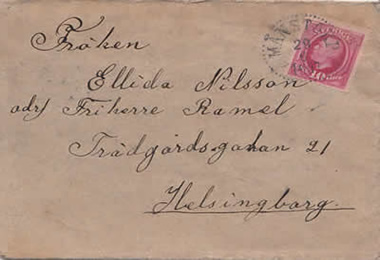 Fröken
Ellida Nilsson
adr/ Friherre Ramel
Trädgårdsgatan 21
Helsingborg.